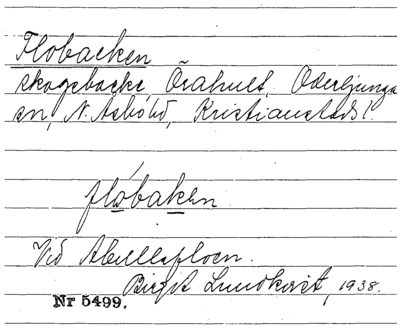 Flobacken
skogsbacke, Örahult, Oderljunga
sn, N. Åsbo hd, Kristianstads l.
flo̲bak̲en
Vid Abullafloen.
Birgit Lundkvist, 1938.
Nr 5499.